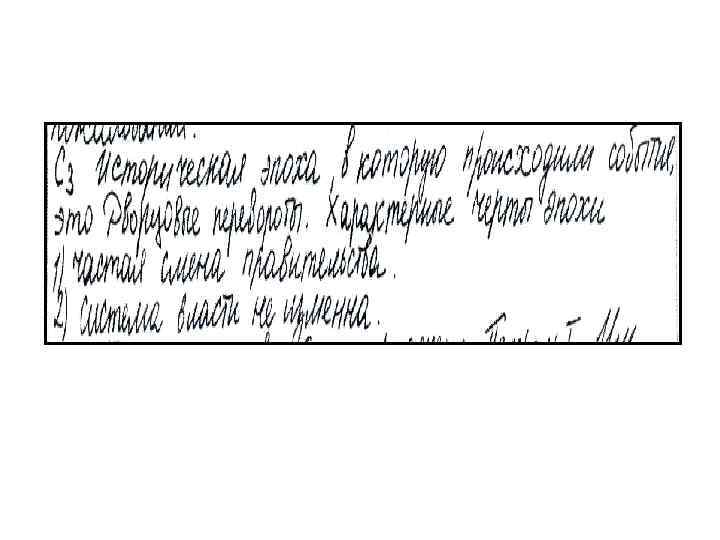 С3 Историческая эпоха, в которую происходили события,
это Дворцовые перевороты. Характерные черты эпохи
1) частая смена правительства.
2) система власти не изменна.